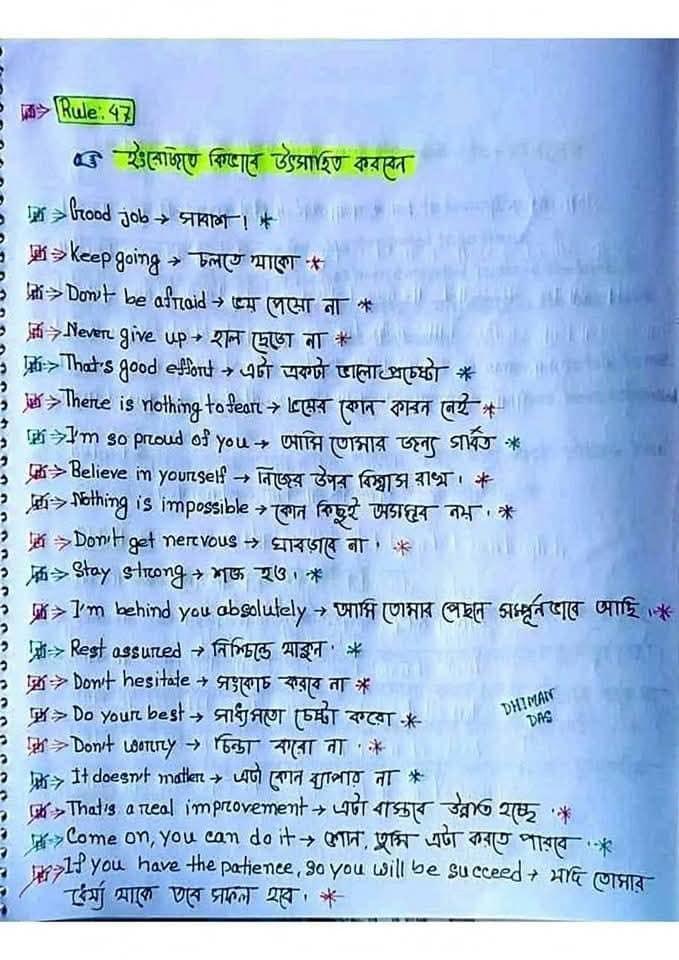 Rule: 47
ইংরেজিতে কিভাবে উৎসাহিত করবেন
Good job → সাবাশ।
Keep going → চলতে থাকো
Don't be afraid → ভয় পেয়ো না
Never give up → হাল ছেড়ো না
That's good effort → এটা একটা ভালো প্রচেষ্টা
There is nothing to fear → ভয়ের কোন কারন নেই
I'm so proud of you → আমি তোমার জন্য গর্বিত
Believe in yourself → নিজের উপর বিশ্বাস রাখ।
Nothing is impossible → কোন কিছুই অসম্ভব নয়।
Don't get nervous → ঘাবড়াবে না।
Stay strong → শক্ত হও।
I'm behind you absolutely → আমি তোমার পেছনে সম্পূর্ন ভাবে আছি।
Rest assured → নিশ্চিন্তে থাকুন।
Don't hesitate → সংকোচ করবে না
Do your best → সাধ্যমতো চেষ্টা করো
DHIMAN
DAS
Don't worry → চিন্তা করো না।
It doesn't matter → এটা কোন ব্যাপার না
That's a real improvement → এটা বাস্তবে উন্নতি হচ্ছে
Come on, you can do it → শোন, তুমি এটা করতে পারবে
If you have the patience, so you will be succeed → যদি তোমার
ধৈর্য্য থাকে তবে সফল হবে।